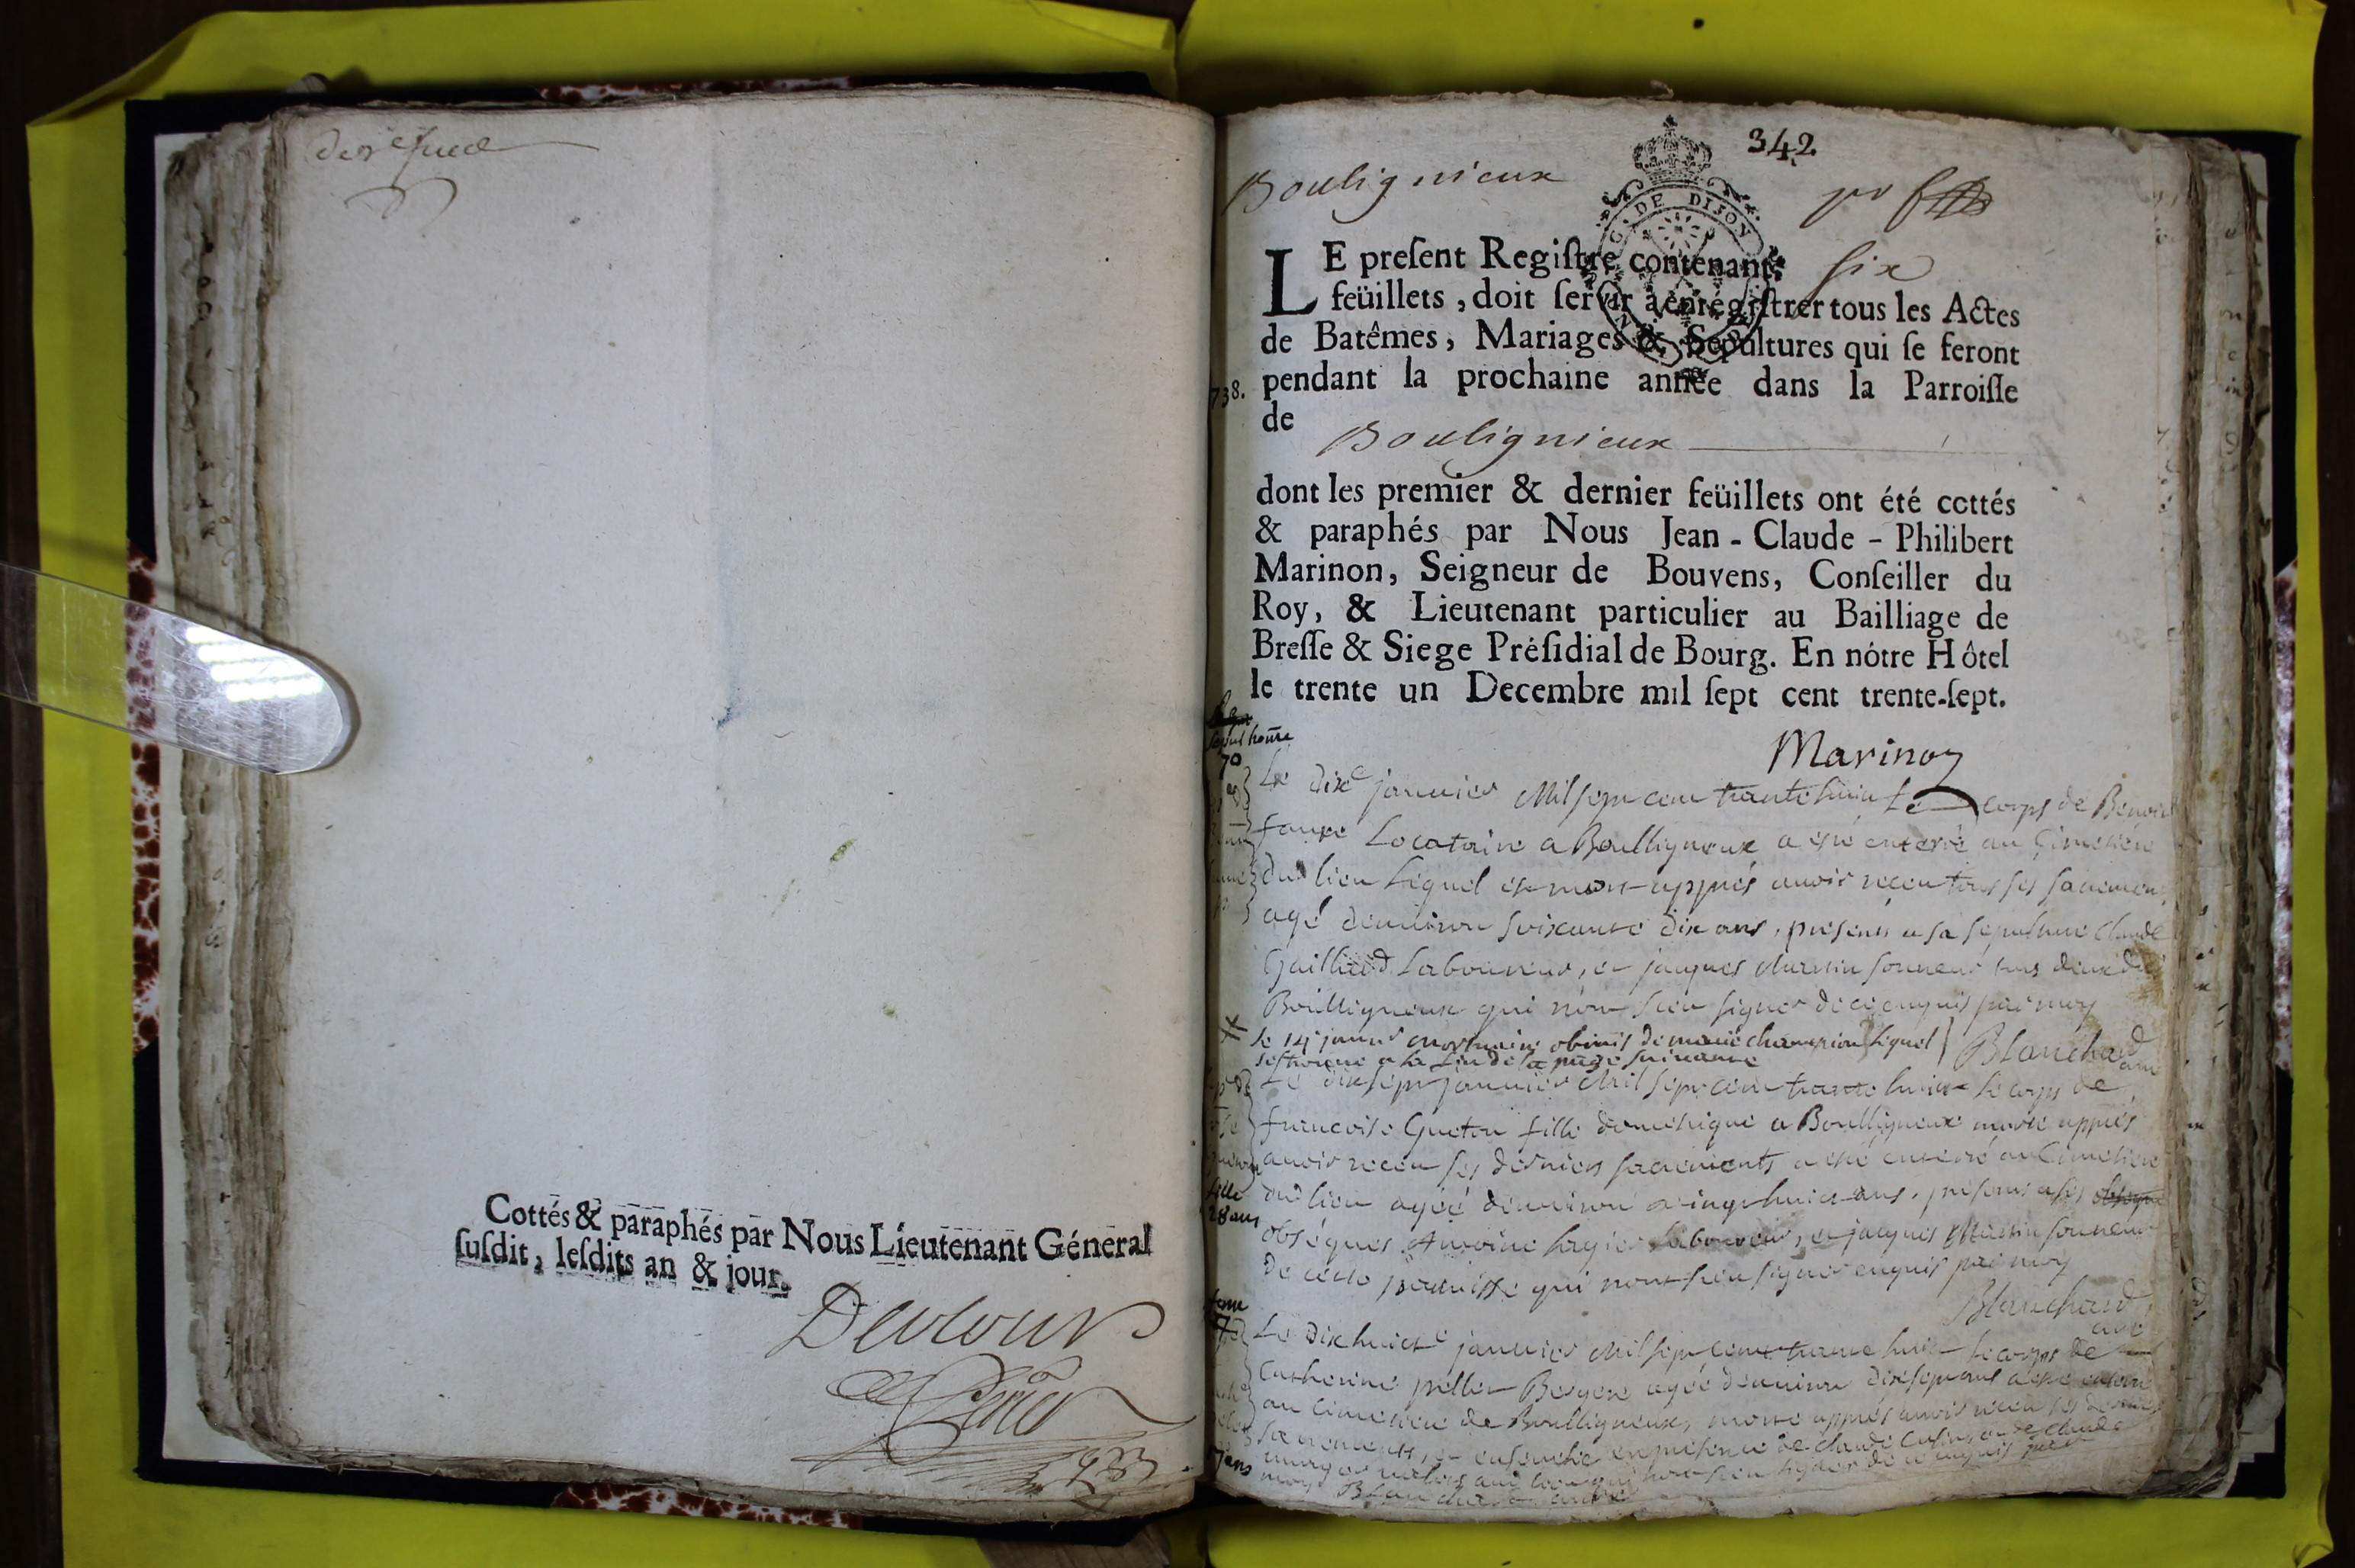 Cottés & paraphés par Nous Lieutenant Géneral
ſuſdit, leſdits an & jour.
342
Boulignieux
C. DE DIJON
LE preſent Regiſtre contenant six
feüillets, doit ſervir à enrégiſtrer tous les Actes
de Batêmes, Mariages & Sepultures qui ſe feront
738. pendant la prochaine année dans la Parroiſſe
de
Boulignieux
dont les premier & dernier feüillets ont été cottés
& paraphés par Nous Jean-Claude-Philibert
Marinon, Seigneur de Bouvens, Conſeiller du
Roy, & Lieutenant particulier au Bailliage de
Breſſe & Siege Préſidial de Bourg. En nôtre Hôtel
le trente un Decembre mil ſept cent trente-ſept.
Marinon
70
Le dixe janvier Mil sept cent trante huit Le corps de Benoit
faure Locataire a Boulligneux a esté enterré au Cimetiere
dud lieu Lequel est mort appres avoir receu tous ses sacremens
agé denviron soixante dix ans, presents a sa sepulture Claude
Gailliard Laboureur, et jacques Martin sonneur tous deux de
Boulligneux qui nont sceu signer de ce enquis par moy
Blanchard
le 14 janvr mortuaire obmis de marie champion Lequel
se trouve a la fin de la page suivante
Le dix sept janvier Mil sept cent trante huict le corps de
francoise Gueton fille domestique a Boulligneux morte appres
avoir receu ses derniers sacrements a esté enterré au Cimetiere
dud lieu agéé denviron vingt huict ans, presents a ses
fille
28 ans
obseques Antoine Laboureur, et jacques Martin sonneur
de cette parroisse qui nont sceu signer enquis par moy
Blanchard
curé
Le dix huicte janvier Mil sept cent trante huict le corps de
Catherine Bergere agéé denviron dix sept ans a esté enterré
au Cimetiere de Boulligneux, morte appres avoir receu ses derniers
sacrements, et ensevelie en presence de claude et de claude
17 ans
moy Blanchard curé